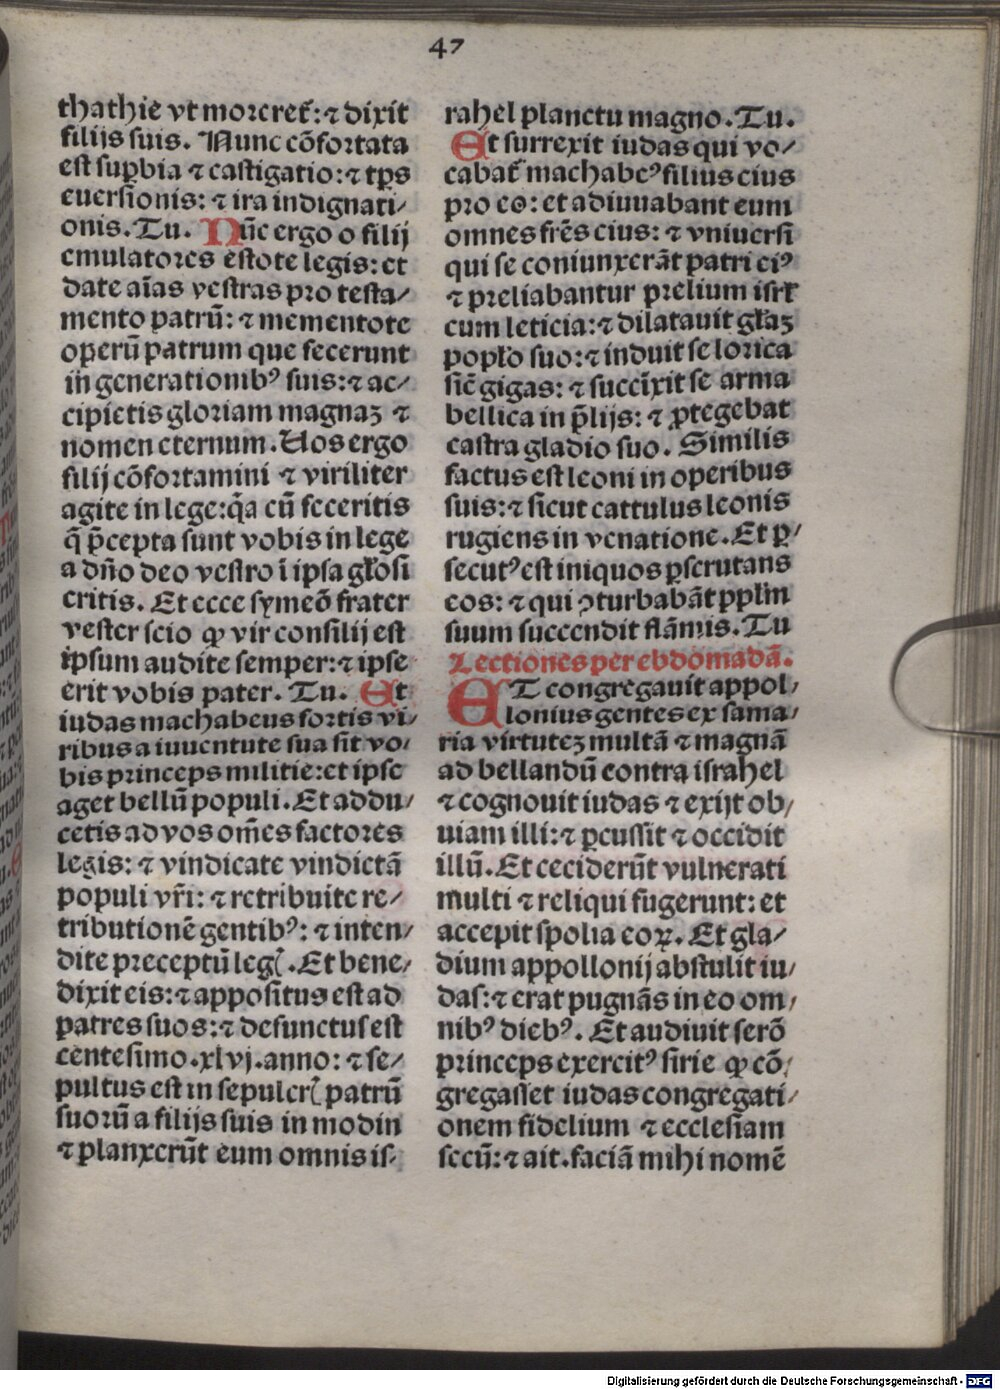 47
thathie vt morcret᷒: ⁊ dixit
filijs suis. Nunc cōfortata
est suꝑbia ⁊ castigatio: ⁊ tp̄s
euersionis: ⁊ ira indignati/
onis. Tu. Nūc ergo o filij
emulatores estote legis: et
date aīas vestras pro testa/
mento patrū: ⁊ mementote
operū patrum que fecerunt
in generationibꝰ suis: ⁊ ac/
cipietis gloriam magnaꝫ ⁊
nomen eternum. Uos ergo
filij cōfortamini ⁊ viriliter
agite in lege: qꝛ̄a cū feceritis
q̄ p̄cepta sunt vobis in lege
a dn̄o deo vestro ī ipsa gl̄osi
eritis. Et ecce symeō frater
vester scio ꝙ vir consilij est
ipsum audite semper: ⁊ ipse
erit vobis pater. Tu. Et
iudas machabeus fortis vi/
ribus a iuuentute sua sit vo/
bis princeps militie: et ipse
aget bellū populi. Et addu/
cetis ad vos om̄es factores
legis: ⁊ vindicate vindictā
populi vr̄i: ⁊ retribuite re/
tributionē gentibꝰ: ⁊ inten/
dite preceptū legꝭ. Et bene/
dixit eis: ⁊ appositus est ad
patres suos: ⁊ defunctus est
centesimo .xlvj. anno: ⁊ se/
pultus est in sepulcrꝭ patrū
suorū a filijs suis in modin
⁊ planxerūt eum omnis is/
rahel planctu magno. Tu.
Et surrexit iudas qui vo/
cabat᷒ machabeꝰ filius eius
pro eo: et adiuuabant eum
omnes fr̄es eius: ⁊ vniuersi
qui se coniunxerāt patri eiꝰ
⁊ preliabantur prelium isrl̄
cum leticia: ⁊ dilatauit gl̄aꝫ
popl̄o suo: ⁊ induit se lorica
sic̄ gigas: ⁊ succīxit se arma
bellica in p̄lijs: ⁊ ꝓtegebat
castra gladio suo. Similis
factus est leoni in operibus
suis: ⁊ sicut cattulus leonis
rugiens in venatione. Et ꝑ/
secutꝰ est iniquos ꝑscrutans
eos: ⁊ qui ꝯturbabāt ppl̄m
suum succendit flāmis. Tu
Lectiones per ebdomadā.
ET congregauit appol/
lonius gentes ex sama/
ria virtuteꝫ multā ⁊ magnā
ad bellandū contra israhel
⁊ cognouit iudas ⁊ exijt ob/
uiam illi: ⁊ ꝑcussit ⁊ occidit
illū. Et ceciderūt vulnerati
multi ⁊ reliqui fugerunt: et
accepit spolia eoꝝ. Et gla/
dium appollonij abstulit iu/
das: ⁊ erat pugnās in eo om/
nibꝰ diebꝰ. Et audiuit serō
princeps exercitꝰ sirie ꝙ cō/
gregasset iudas congregati/
onem fidelium ⁊ ecclesiam
secū: ⁊ ait. faciā mihi nomē
Digitalisierung gefördert durch die Deutsche Forschungsgemeinschaft - DFG